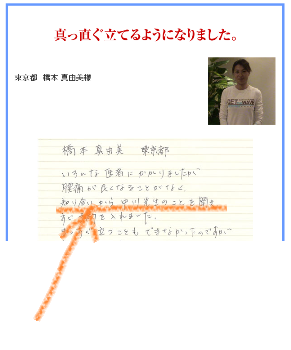 真っ直ぐ立てるようになりました。
東京都 橋本 真由美様
橋本 真由美 東京都
いろんな医者にかかりましたが
腰痛が良くなることがなく、
知り合いから中川先生のことを聞き
を入れました。
立つこともできなかったのですが